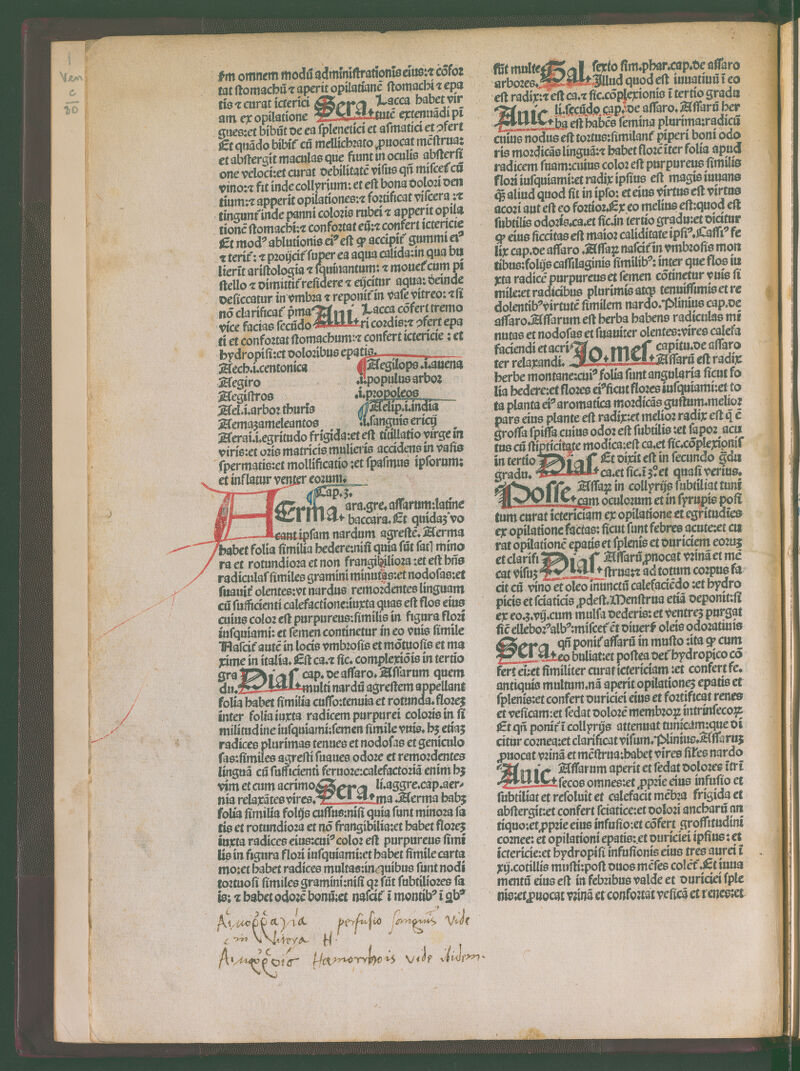 1
Ven
c
80
fm omnem modū administrationis eius: ⁊ cōfor
tat stomachū ⁊ aperit opilatianē stomachi ⁊ epa
tis ⁊ curat icterici Sera. Lacca habet vir
am ex opilatione tutē extenuādi pī
gues: et bibūt de ea splenetici et asmatici et ꝯfert
Et quādo bibit̄ cū mellicrato ꝓuocat mēstrua:
et abstergit maculas que fiunt in oculis abstersi
one veloci: et curat debilitatē visus qn̄ miscet̄ cū
vino: ⁊ fit inde collyrium: et est bona dolori den
tium: ⁊ apperit opilationes: ⁊ fortificat viscera: ⁊
tingunt̄ inde panni coloris rubei ⁊ apperit opila
tionē stomachi: ⁊ confortat eū: ⁊ confert ictericie
Et modꝰ ablutionis eiꝰ est ꝙ accipit̄ gummi eiꝰ
⁊ terit̄: ⁊ proijcit̄ super ea aqua calida: in qua bu
lierīt aristologia ⁊ squinantum: ⁊ mouet̄ cum pi
stello ⁊ dimittit̄ residere ⁊ eijcitur aqua: deinde
desiccatur in vmbra ⁊ reponit̄ in vase vitreo: ⁊ si
nō clarificat̄ pͥma Aui. Lacca cōfert tremo
vice facias secūdo ri cordis: ⁊ ꝯfert epa
ti et confortat stomachum: ⁊ confert ictericie: et
hydropisi: et doloribus epatis.
Aech .i. centonica Aegilops .i. auena
Aegiro .i. populus arbor
Aegistros .i. propoleos
Ael .i. arbor thuris Aelip .i. india
Aemazameleantos .i. sanguis ericij
Aerai .i. egritudo frigida: et est titillatio virge in
viris: et oris matricis mulieris accidens in vasis
spermatis: et mollificatio: et spasmus ipsorum:
et inflatur venter eorum. Cap. 3.
AErma. ara. gre. assarum: latine
baccara. Et quidaꝫ vo
cant ipsam nardum agrestē. Aerma
habet folia similia hedere: nisi quia sūt satꝫ mino
ra et rotundiora et non frangibiliora: et est hn̄s
radiculas similes gramini minutas: et nodosas: et
suauit̄ olentes: vt nardus remordentes linguam
cū sufficienti calefactione: iuxta quas est flos eius
cuius color est purpureus: similis in figura flori
iusquiami: et semen continetur in eo vuis simile
Nascit̄ autē in locis vmbrosis et mōtuosis et ma
xime in italia. Est ca. ⁊ sic. complexiōis in tertio
gra Dias. cap. de assaro. Assarum quem
du. multi nardū agrestem appellant
folia habet similia cusso: tenuia et rotunda. floreꝫ
inter folia iuxta radicem purpurei coloris in si
militudine iusquiami: semen simile vuis. hꝫ etiaꝫ
radices plurimas tenues et nodosas et geniculo
sas: similes agresti suaues odore et remordentes
linguā cū sufficienti feruore: calefactoriā enim hꝫ
vim et cum acrimo Sera. li. aggre. cap. aer-
nia relaxātes vires. ma. Aerma habꝫ
folia similia folijs cussus: nisi quia sunt minora sa
tis et rotundiora et nō frangibilia: et habet floreꝫ
iuxta radices eius: cuiꝰ color est purpureus simi
lis in figura flori iusquiami: et habet simile carta
mo: et habet radices multas: in quibus sunt nodi
tortuosi similes gramini: nisi qꝛ sūt subtiliores sa
is: ⁊ habet odorē bonū: et nascit̄ ī montibꝰ ī ꝗbꝰ
Αἱμορραγία perfusio sanguinis vide
in litera H
Αἱμορροίς Hamorrhois vide ibidem.
sūt multe Gal. sexto sim. phar. cap. de assaro
arbores. Illud quod est iuuatiuū ī eo
est radix: ⁊ est ca. ⁊ sic. cōplexionis ī tertio gradu
Auic. li. secūdo cap. de assaro. Assarū her
ba est habēs semina plurima: radicū
cuius nodus est tortus: similant̄ piperi boni odo
ris mordicās linguā: ⁊ habet florē īter folia apud
radicem suam: cuius color est purpureus similis
flori iusquiami: et radix ipsius est magis iuuans
ꝗ̄ aliud quod sit in ipso: et eius virtus est virtus
acori aut est eo fortior. Ex eo melius est: quod est
subtilis odoris. ca. et sic. in tertio gradu: et dicitur
ꝙ eius siccitas est maior caliditate ipsiꝰ. Cassiꝰ fe
lix cap. de assaro. Assaꝝ nascit̄ in vmbrosis mon
tibus: folijs cassilaginis similibꝰ: inter que flos iu
xta radicē purpureus et semen cōtinetur vuis si
mile: et radicibus plurimis atqꝫ tenuissimis et re
dolentibꝰ virtutē similem nardo. Plinius cap. de
assaro. Assarum est herba habens radiculas mi
nutas et nodosas et suauiter olentes: vires calefa
faciendi et acri Jo. mes. capitu. de assaro
ter relaxandi. Assarū est radix
herbe montane: cuiꝰ folia sunt angularia sicut fo
lia hedere: et flores eiꝰ sicut flores iusquiami: et to
ta planta eiꝰ aromatica mordicās gustum. melior
pars eius plante est radix: et melior radix est q̄ ē
grossa spissa cuius odor est subtilis: et sapor acu
tus cū stipticitate modica: est ca. et sic. cōplexionis
in tertio Dias. Et dixit est in secundo g̈du
gradu. ca. et sic. ī 3°. et quasi verius.
Posse. Assaꝝ in collyrijs subtiliat tuni
cam oculorum et in syrupis posi
tum curat ictericiam ex opilatione et egritudies
ex opilatione factas: sicut sunt febres acute: et cu
rat opilationē epatis et splenis et duriciem eoruꝫ
et clarifi Dias. Assarū ꝓuocat vrinā et mē
cat visuꝫ strua: ⁊ ad totum corpus fa
cit cū vino et oleo inunctū calefaciēdo: et hydro
picis et sciaticis ꝓdest. Menstrua etiā deponit: si
ex eo .3. vij. cum mulsa dederis: et ventreꝫ purgat
sic̄ elleborꝰ albꝰ: miscet̄ ēt diuersꝭ oleis odoratiuis
Sera. qn̄ ponit̄ assarū in musto: ita ꝙ cum
eo buliat: et postea det̄ hydropico cō
fert ei: et similiter curat ictericiam: et confert fe.
antiquis multum. nā aperit opilationeꝫ epatis et
splenis: et confert duriciei eius et fortificat renes
et vesicam: et sedat dolorē membroꝝ intrinsecoꝝ
Et qn̄ ponit̄ ī collyrijs attenuat tunicam: que di
citur cornea: et clarificat visum. Plinius. Assaruꝫ
ꝓuocat vrinā et mēstrua: habet vires siles nardo
Auic. Assarum aperit et sedat dolores ītrī
secos omnes: et ꝓprie eius infusio et
subtiliat et resoluit et calefacit mēbra frigida et
abstergit: et confert sciatice: et dolori ancharū an
tiquo: et ꝓprie eius infusio: et cōfert grossitudini
cornee: et opilationi epatis: et duriciei ipsius: et
ictericie: et hydropisi infusionis eius tres aurei ī
xij. cotillis musti: post duos mēses colēt̄. Et iuua
mentū eius est in febribus valde et duriciei sple
nis: et ꝓuocat vrinā et confortat vesicā et renes: et